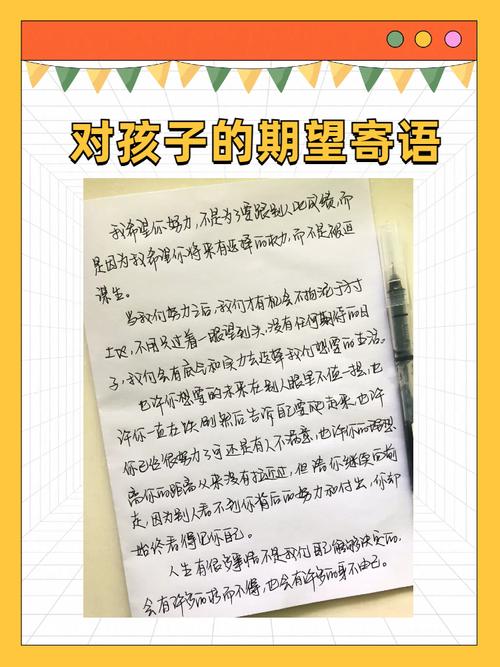 对孩子的期望寄语
我希望你努力,不是为了要跟别人比成绩,而
是因为我希望你将来有选择的权力,而不是被迫
谋生。
当我们努力之后,我们才有机会不拘泥于方寸
土地,不用只过着一眼望到头,没有任何期待的日
子,我们会有底气和实力去选择我们想要的生活。
也许你想要的未来在别人眼里不值一提,也
许你一直在跌倒然后告诉自己要爬起来,也许
你已经很努力了可还是有人不满意,也许你的理想
离你的距离从来没有拉近过,但请你继续向前
走,因为别人看不到你背后的努力和付出,你却
始终看得见你自己。
人生有很多事情不是我们自己能够决定的,
会有许多的求而不得,也会有许多的身不由己。